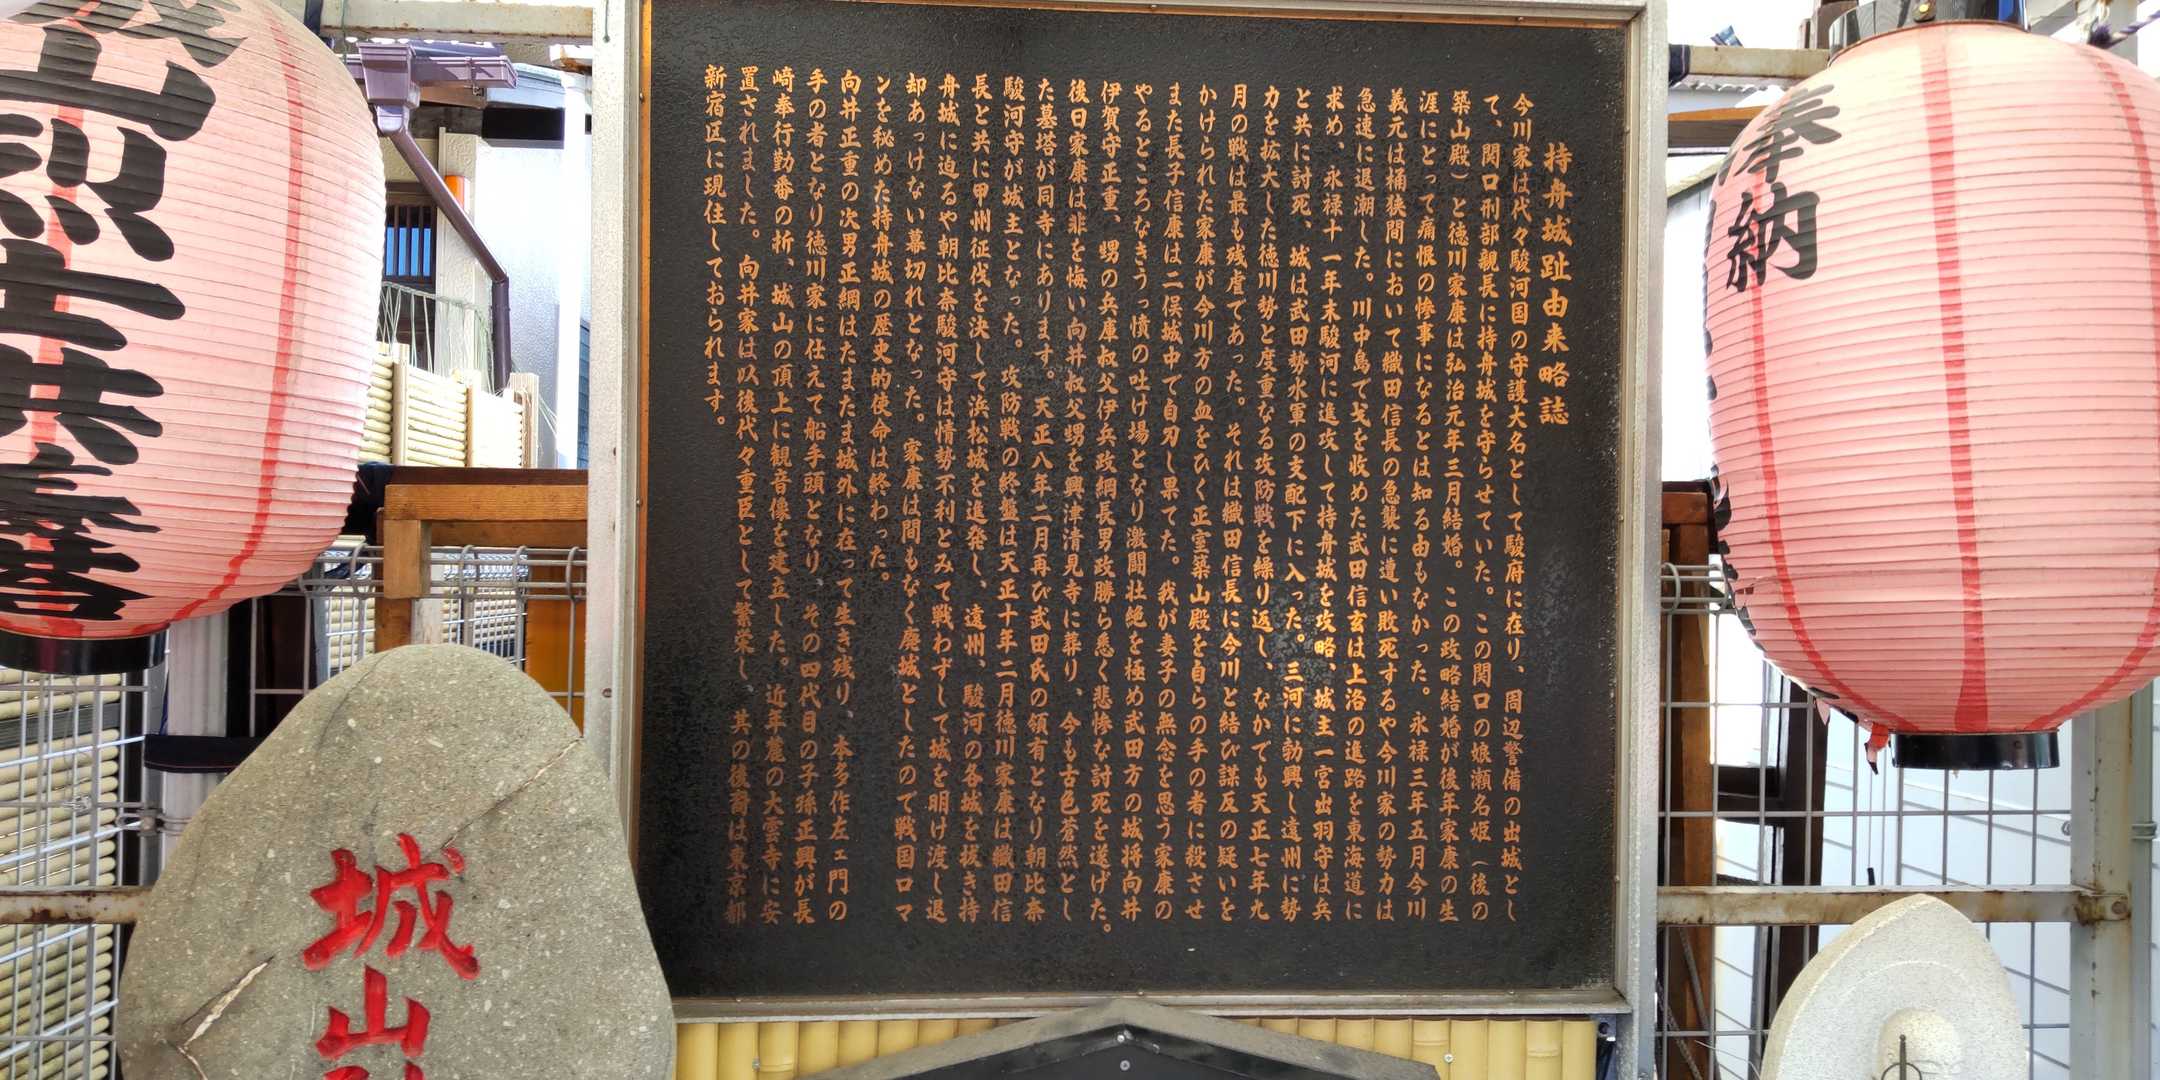 持舟城趾由来略誌
今川家は代々駿河国の守護大名として駿府に在り、周辺警備の出城とし
て、関口刑部親長に持舟城を守らせていた。この関口の娘瀬名姫（後の
築山殿）と徳川家康は弘治元年三月結婚。この政略結婚が後年家康の生
涯にとって痛恨の惨事になるとは知る由もなかった。永禄三年五月今川
義元は桶狭間において織田信長の急襲に遭い敗死するや今川家の勢力は
急速に退潮した。川中島で戈を收めた武田信玄は上洛の進路を東海道に
求め、永禄十一年末駿河に進攻して持舟城を攻略、城主一宮出羽守は兵
と共に討死、城は武田勢水軍の支配下に入った。三河に勃興し遠州に勢
力を拡大した徳川勢と度重なる攻防戦を繰り返し、なかでも天正七年九
月の戦は最も残虐であった。それは織田信長に今川と結び謀反の疑いを
かけられた家康が今川方の血をひく正室築山殿を自らの手の者に殺させ
また長子信康は二俣城中で自刃し果てた。我が妻子の無念を思う家康の
やるところなきうっ憤の吐け場となり激闘壮絶を極め武田方の城将向井
伊賀守正重、甥の兵庫叔父伊兵政綱長男政勝ら悉く悲惨な討死を遂げた。
後日家康は非を悔い向井叔父甥を興津清見寺に葬り、今も古色蒼然とし
た墓塔が同寺にあります。天正八年二月再び武田氏の領有となり朝比奈
駿河守が城主となった。攻防戦の終盤は天正十年二月徳川家康は織田信
長と共に甲州征伐を決して浜松城を進発し、遠州、駿河の各城を抜き持
舟城に迫るや朝比奈駿河守は情勢不利とみて戦わずして城を明け渡し退
却あっけない幕切れとなった。家康は間もなく廃城としたので戦国ロマ
ンを秘めた持舟城の歴史的使命は終わった。
向井正重の次男正綱はたまたま城外に在って生き残り、本多作左ェ門の
手の者となり徳川家に仕えて船手頭となり、その四代目の子孫正興が長
崎奉行勤番の折、城山の頂上に観音像を建立した。近年麓の大雲寺に安
置されました。向井家は以後代々重臣として繁栄し、其の後裔は東京都
新宿区に現住しております。
奉納
山烈士供養
城
山